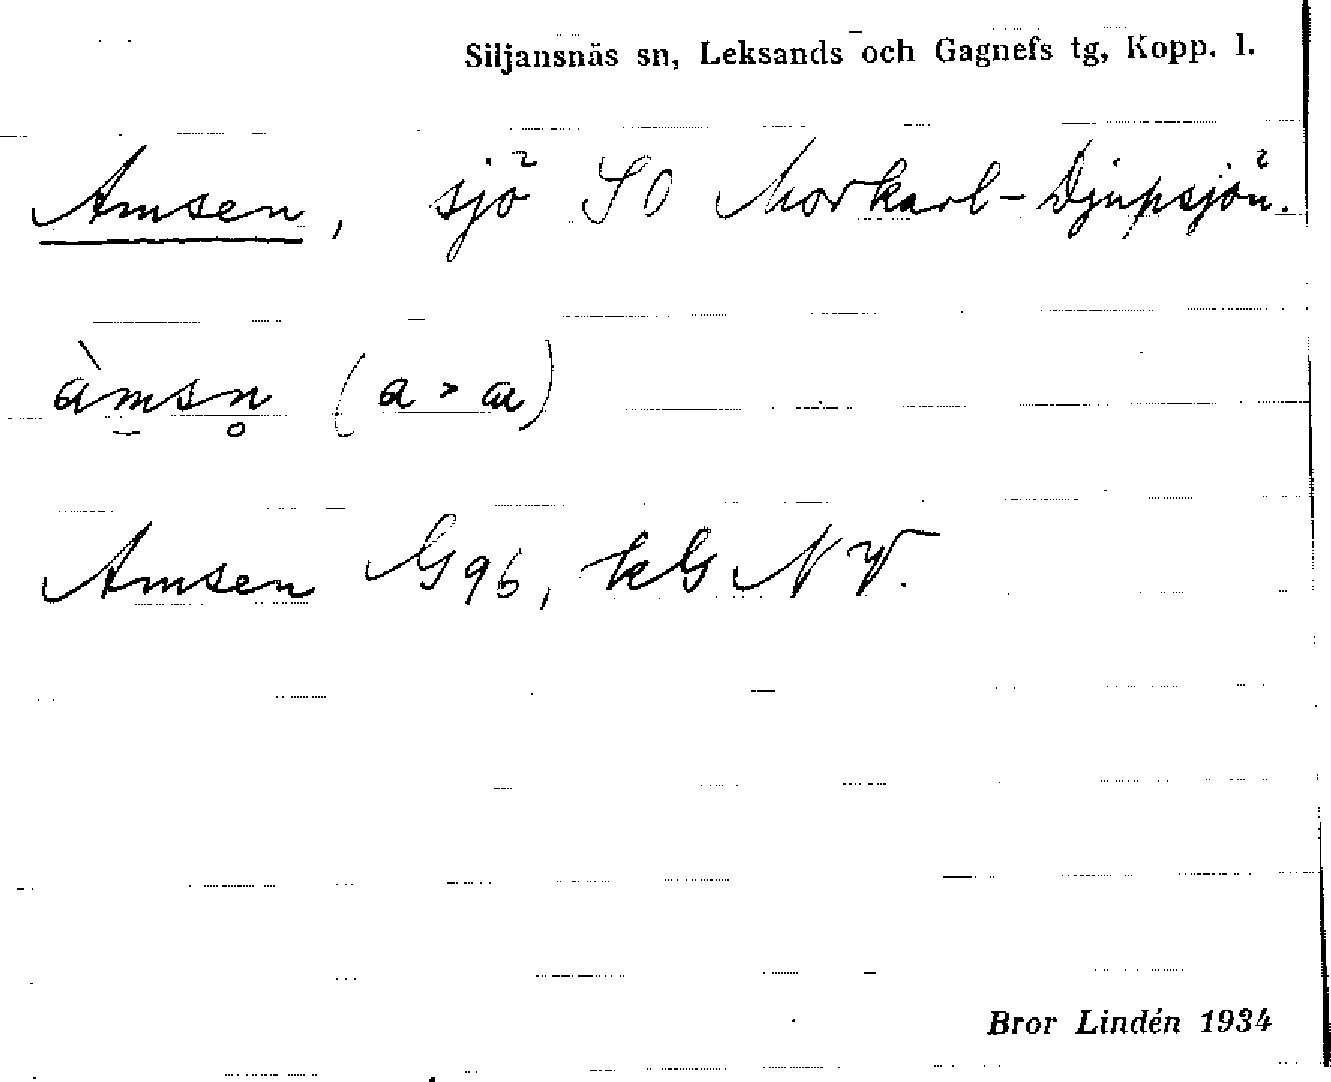 Siljansnäs sn, Leksands och Gagnefs tg, Kopp. l.
Amsen, sjö SO Morkarl-Djupsjön.
àmsn̥ (a > æ)
Amsen G96, kG NV.
Bror Lindén 1934